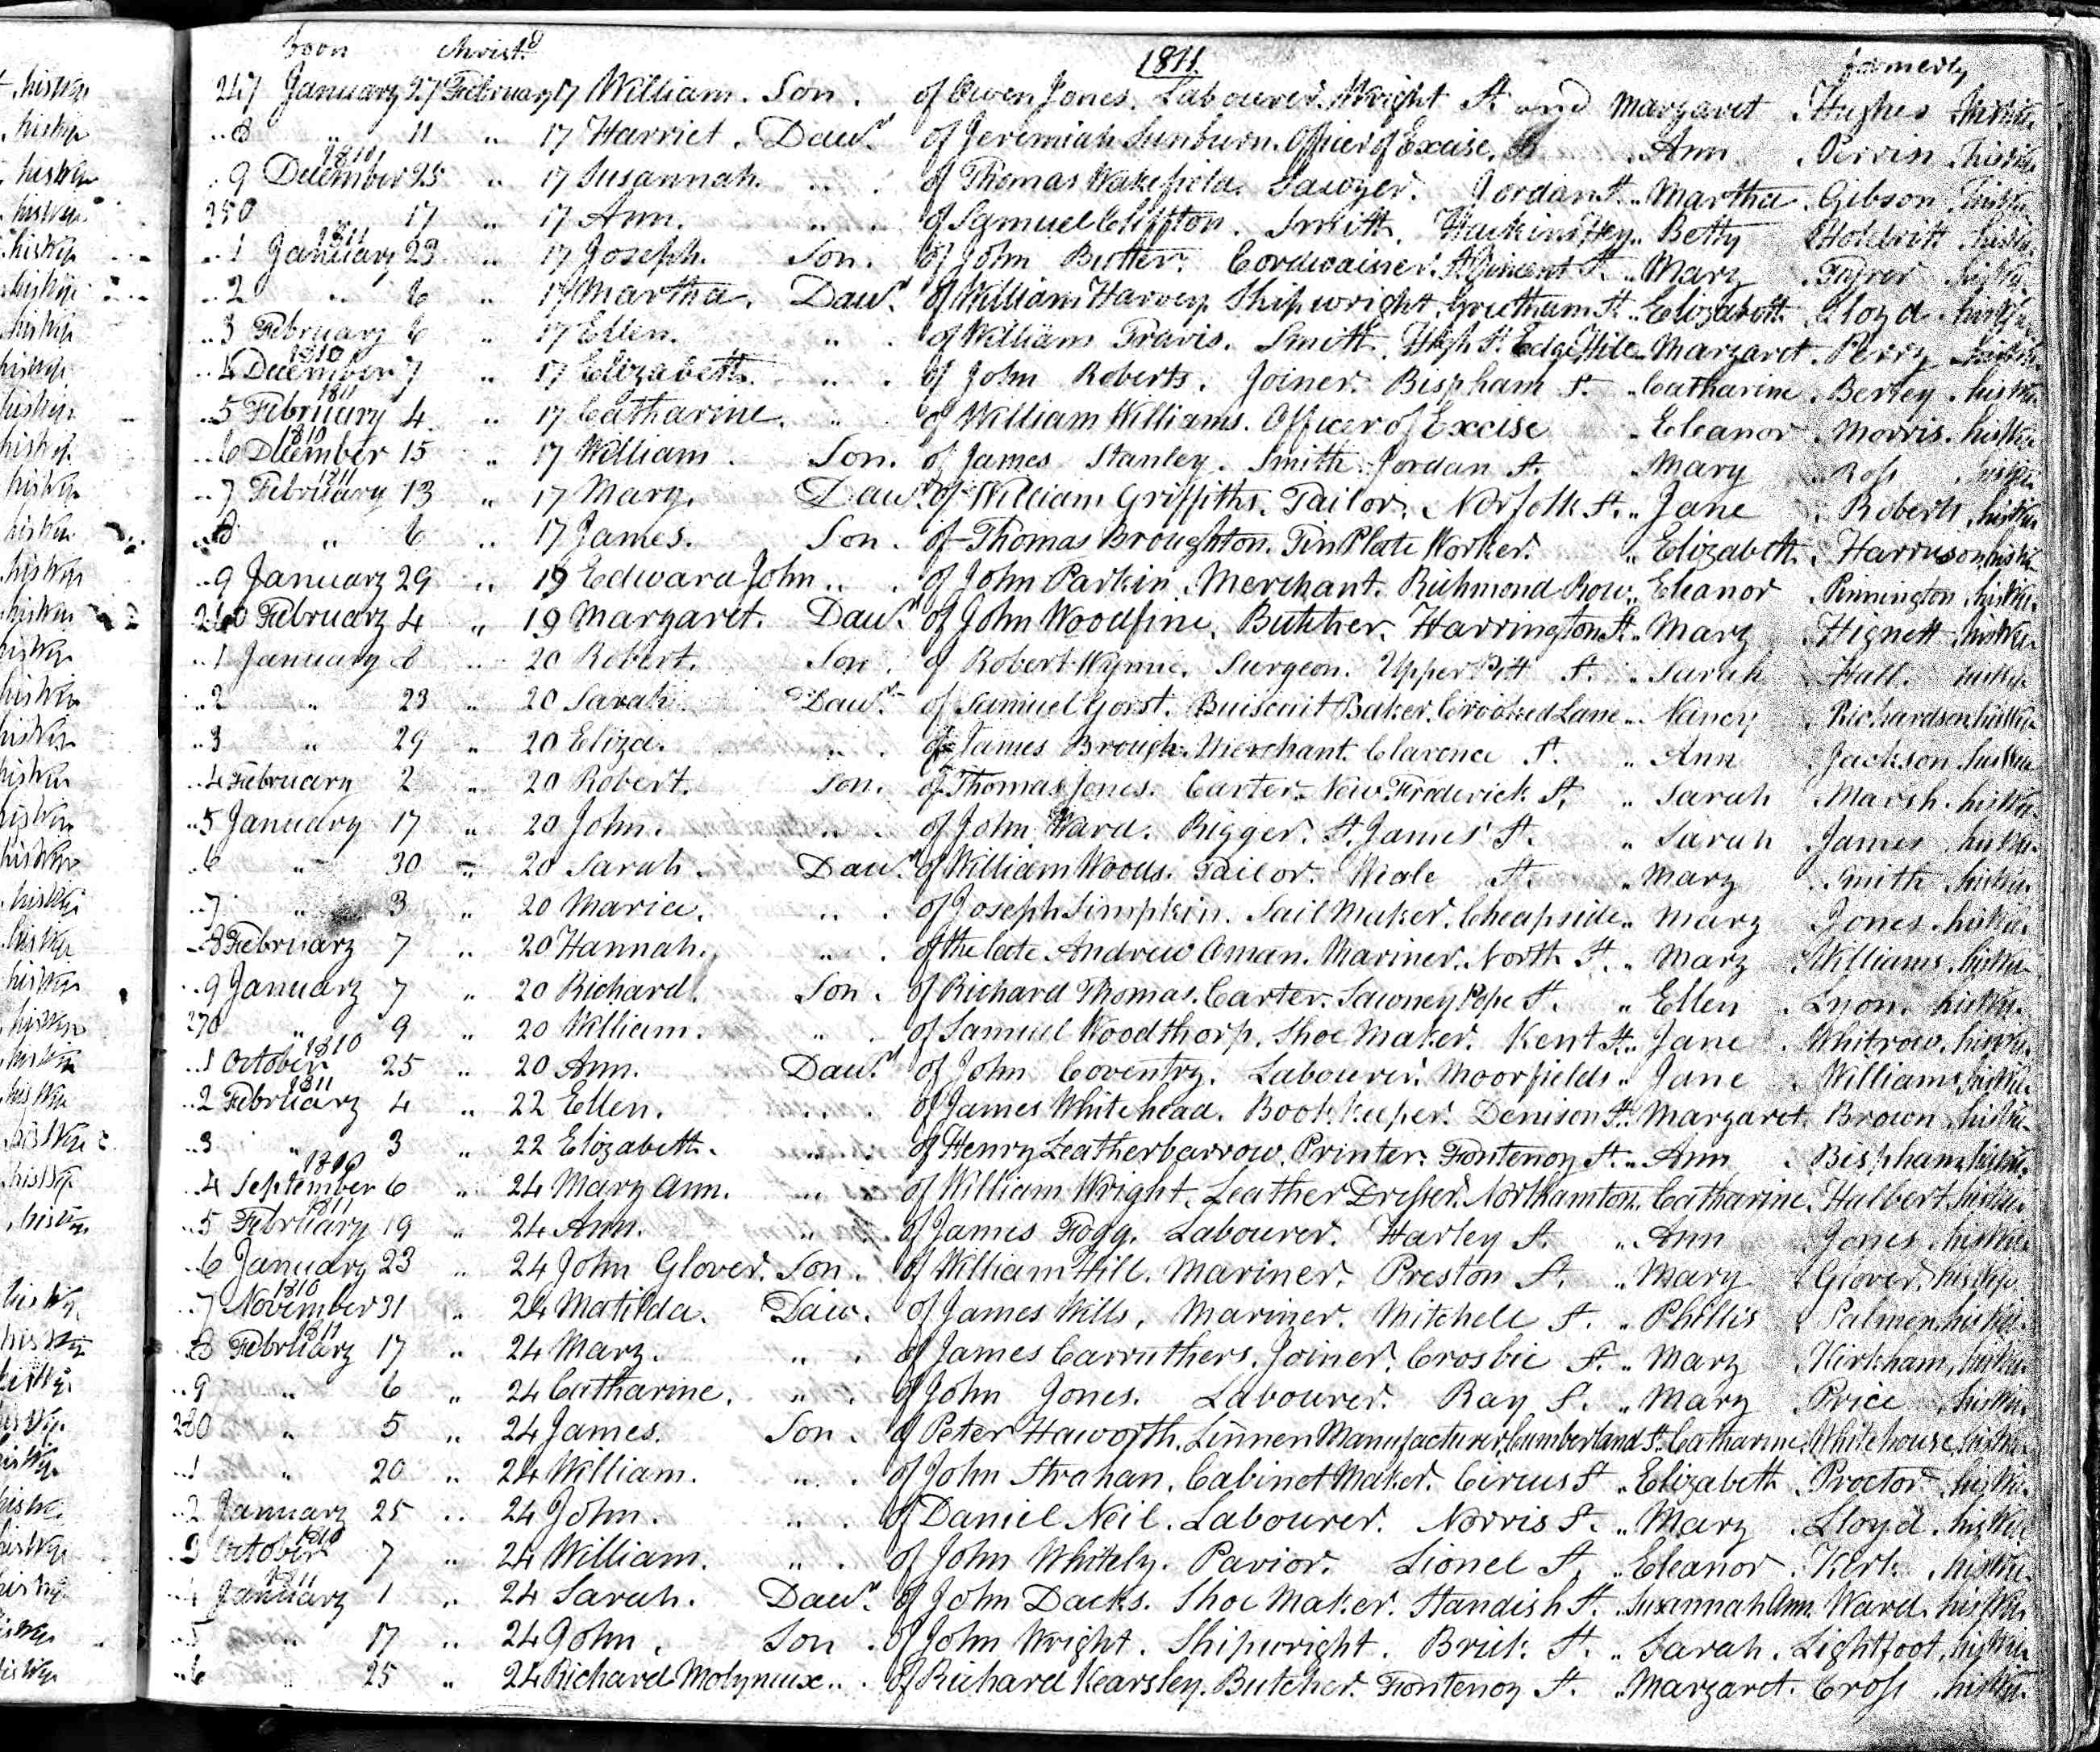 born Christ.d 1811. formerly
247 January 27 February 17 William. Son. of Owen Jones. Labourer. Wright St. and Margaret Hughes his Wife
..8 " 11 " 17 Harriet. Daur. of Jeremiah Sunburn. Officer of Excise. .. Ann Perrin his Wife
1810
..9 December 25 " 17 Susannah. .. . of Thomas Wakefield. Sawyer. Jordan St. .. Martha. Gibson his Wife
250 " 17 " 17 Ann. .. . of Samuel Cliffton. Smith. Hackins Hey .. Betty his Wife
1811
..1 January 23 " 17 Joseph. Son. of John Butter. Cordwainer. St Vincent St. .. Mary his Wife
..2 " 6 " 17 Martha. Daur. of William Harvey. Shipwright. Greetham St. .. Elizabeth Lloyd his Wife
..3 February 6 " 17 Ellen. " . of William Travis. Smith. High St. Edge Hill .. Margaret. Perry his Wife
1810
..4 December 7 " 17 Elizabeth. .. . of John Roberts. Joiner. Bispham St. .. Catharine. Berley his Wife
1811
..5 February 4 " 17 Catharine. .. of William Williams. Officer of Excise .. Eleanor. Morris. his Wife
1810
..6 December 15 " 17 William. Son. of James Stanley. Smith. Jordan St. .. Mary Ross his Wife
1811
..7 February 13 " 17 Mary. Daur. of William Griffiths. Tailor. Norfolk St. .. Jane Roberts his Wife
..8 " 6 .. 17 James. Son. of Thomas Broughton. Tin Plate Worker. .. Elizabeth. Harrison his Wife
..9 January 29 .. 19 Edward John .. . of John Parkin. Merchant. Richmond Row .. Eleanor Pinnington his Wife
260 February 4 " 19 Margaret. Daur. of John Woodfine. Butcher. Harrington St. .. Mary Hignett his Wife
..1 January 8 .. 20 Robert. Son. of Robert Wynne. Surgeon. Upper Pitt St. .. Sarah Hall. his Wife
..2 " 23 .. 20 Sarah Daur. of Samuel Gorst. Buiscuit Baker. Crooked Lane .. Nancy Richardson his Wife
..3 " 29 .. 20 Eliza. .. . of James Brough. Merchant. Clarence St. .. Ann Jackson his Wife
..4 February 2 .. 20 Robert. Son. of Thomas Jones. Carter. New Frederick St. .. Sarah Marsh. his Wife
..5 January 17 .. 20 John. .. . of John Ward. Rigger. St. James' St. .. Sarah James his Wife
..6 " 30 .. 20 Sarah. Daur. of William Woods. Tailor. Weale St. .. Mary Smith his Wife
..7 " 3 .. 20 Maria. .. . of Joseph Simpkin. Sail Maker. Cheapside .. Mary Jones his Wife
..8 February 7 .. 20 Hannah. .. . of the late Andrew Oman. Mariner. North St. .. Mary Williams his Wife
..9 January 7 " 20 Richard. Son. of Richard Thomas. Carter. Sawney Pope St. .. Ellen Lyon. his Wife
270 " 9 " 20 William. .. . of Samuel Woodthorp. Shoe Maker. Kent St. .. Jane Whitrow. his Wife
1810
..1 October 25 " 20 Ann. Daur. of John Coventry. Labourer. Moorfields .. Jane Williams his Wife
1811
..2 February 4 " 22 Ellen. .. . of James Whitehead. Book Keeper. Denison St. Margaret. Brown his Wife
..3 " 3 " 22 Elizabeth. .. . of Henry Leatherbarrow. Printer. Fontenoy St. .. Ann Bispham his Wife
1810
..4 September 6 " 24 Mary Ann. .. . of William Wright. Leather Dresser. Northamton. Catharine. Halbert his Wife
1811
..5 February 19 " 24 Ann. " . of James Fogg. Labourer. Harley St. .. Ann Jones his Wife
..6 January 23 " 24 John Glover. Son. of William Hill. Mariner. Preston St. .. Mary Glover. his Wife
1810
..7 November 31 " 24 Matilda. Daur. of James Wills. Mariner. Mitchell St. .. Phillis Palmer his Wife
1811
..8 February 17 " 24 Mary. .. . of James Carruthers. Joiner. Crosbie St. .. Mary Kirkham his Wife
..9 " 6 " 24 Catharine. " . of John Jones. Labourer. Ray St. .. Mary Price his Wife
280 " 5 " 24 James. Son. of Peter Haworth. Linnen Manufacturer. Cumberland St. Catharine. Whitehouse his Wife
..1 " 20 " 24 William. .. . of John Strahan. Cabinet Maker. Circus St .. Elizabeth Proctor his Wife
..2 January 25 .. 24 John. .. . of Daniel Neil. Labourer. Norris St. .. Mary. Lloyd. his Wife
1810
..3 October 7 " 24 William. .. . of John Whitely. Pavior. Lionel St. .. Eleanor. Kirk. his Wife
1811
..4 January 1 .. 24 Sarah. Daur. of John Dacks. Shoe Maker. Standish St. .. Susannah Ann. Ward. his Wife
..5 " 17 .. 24 John. Son. of John Wright. Shipwright. Brick St. .. Sarah. Lightfoot. his Wife
..6 " 25 " 24 Richard Molyneux .. . of Richard Kearsley. Butcher. Fontenoy St. .. Margaret. Cross his Wife